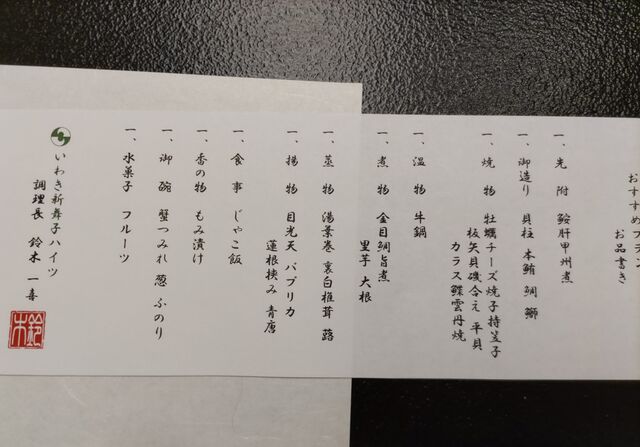 おすすめプラン
お品書き
一、先 附 鮟肝甲州煮
一、御造り 貝柱 本鮪 鯛 鰤
一、焼 物 牡蠣チーズ焼 子持笠子
板矢貝磯合え 平貝
カラス鰈雲丹焼
一、温 物 牛鍋
一、煮 物 金目鯛旨煮
里芋 大根
一、蒸 物 湯葉巻 裏白椎茸 蕗
一、揚 物 目光天 パプリカ
蓮根挟み 青唐
一、食 事 じゃこ飯
一、香の物 もみ漬け
一、御 碗 蟹つみれ 葱 ふのり
一、水菓子 フルーツ
いわき新舞子ハイツ
調理長 鈴木 一喜
鈴木